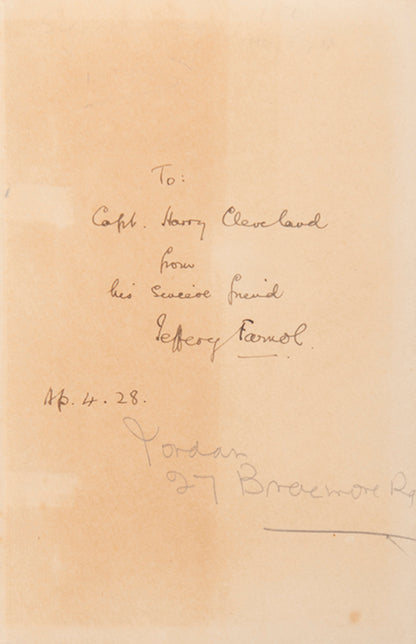 To:
Capt. Harry Cleveland
from
his sincere friend
Jeffery Farnol.
Ap. 4. 28.
Jordan
27 Braemore Rd